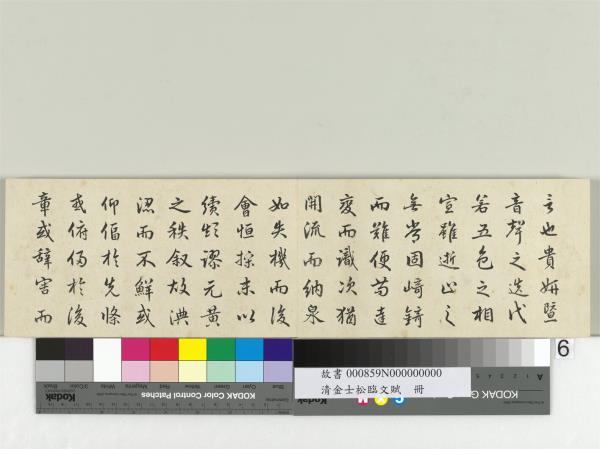 言也貴妍暨
音聲之迭代
若五色之相
宣雖逝止之
無常固崎錡
而難便苟達
變而識次猶
開流而納泉
如失機而後
會恒操末以
續顛謬元黃
之秩叙故淟
涊而不鮮或
仰偪於先條
或俯侵於後
章或辭害而
6
故書 000859N000000000
清金士松臨文賦 冊
Blue Cyan Green Yellow Red Magenta White 3/Color Black
Kodak
KODAK Color Control Patches
KODAK
A 1 2 3 4 5